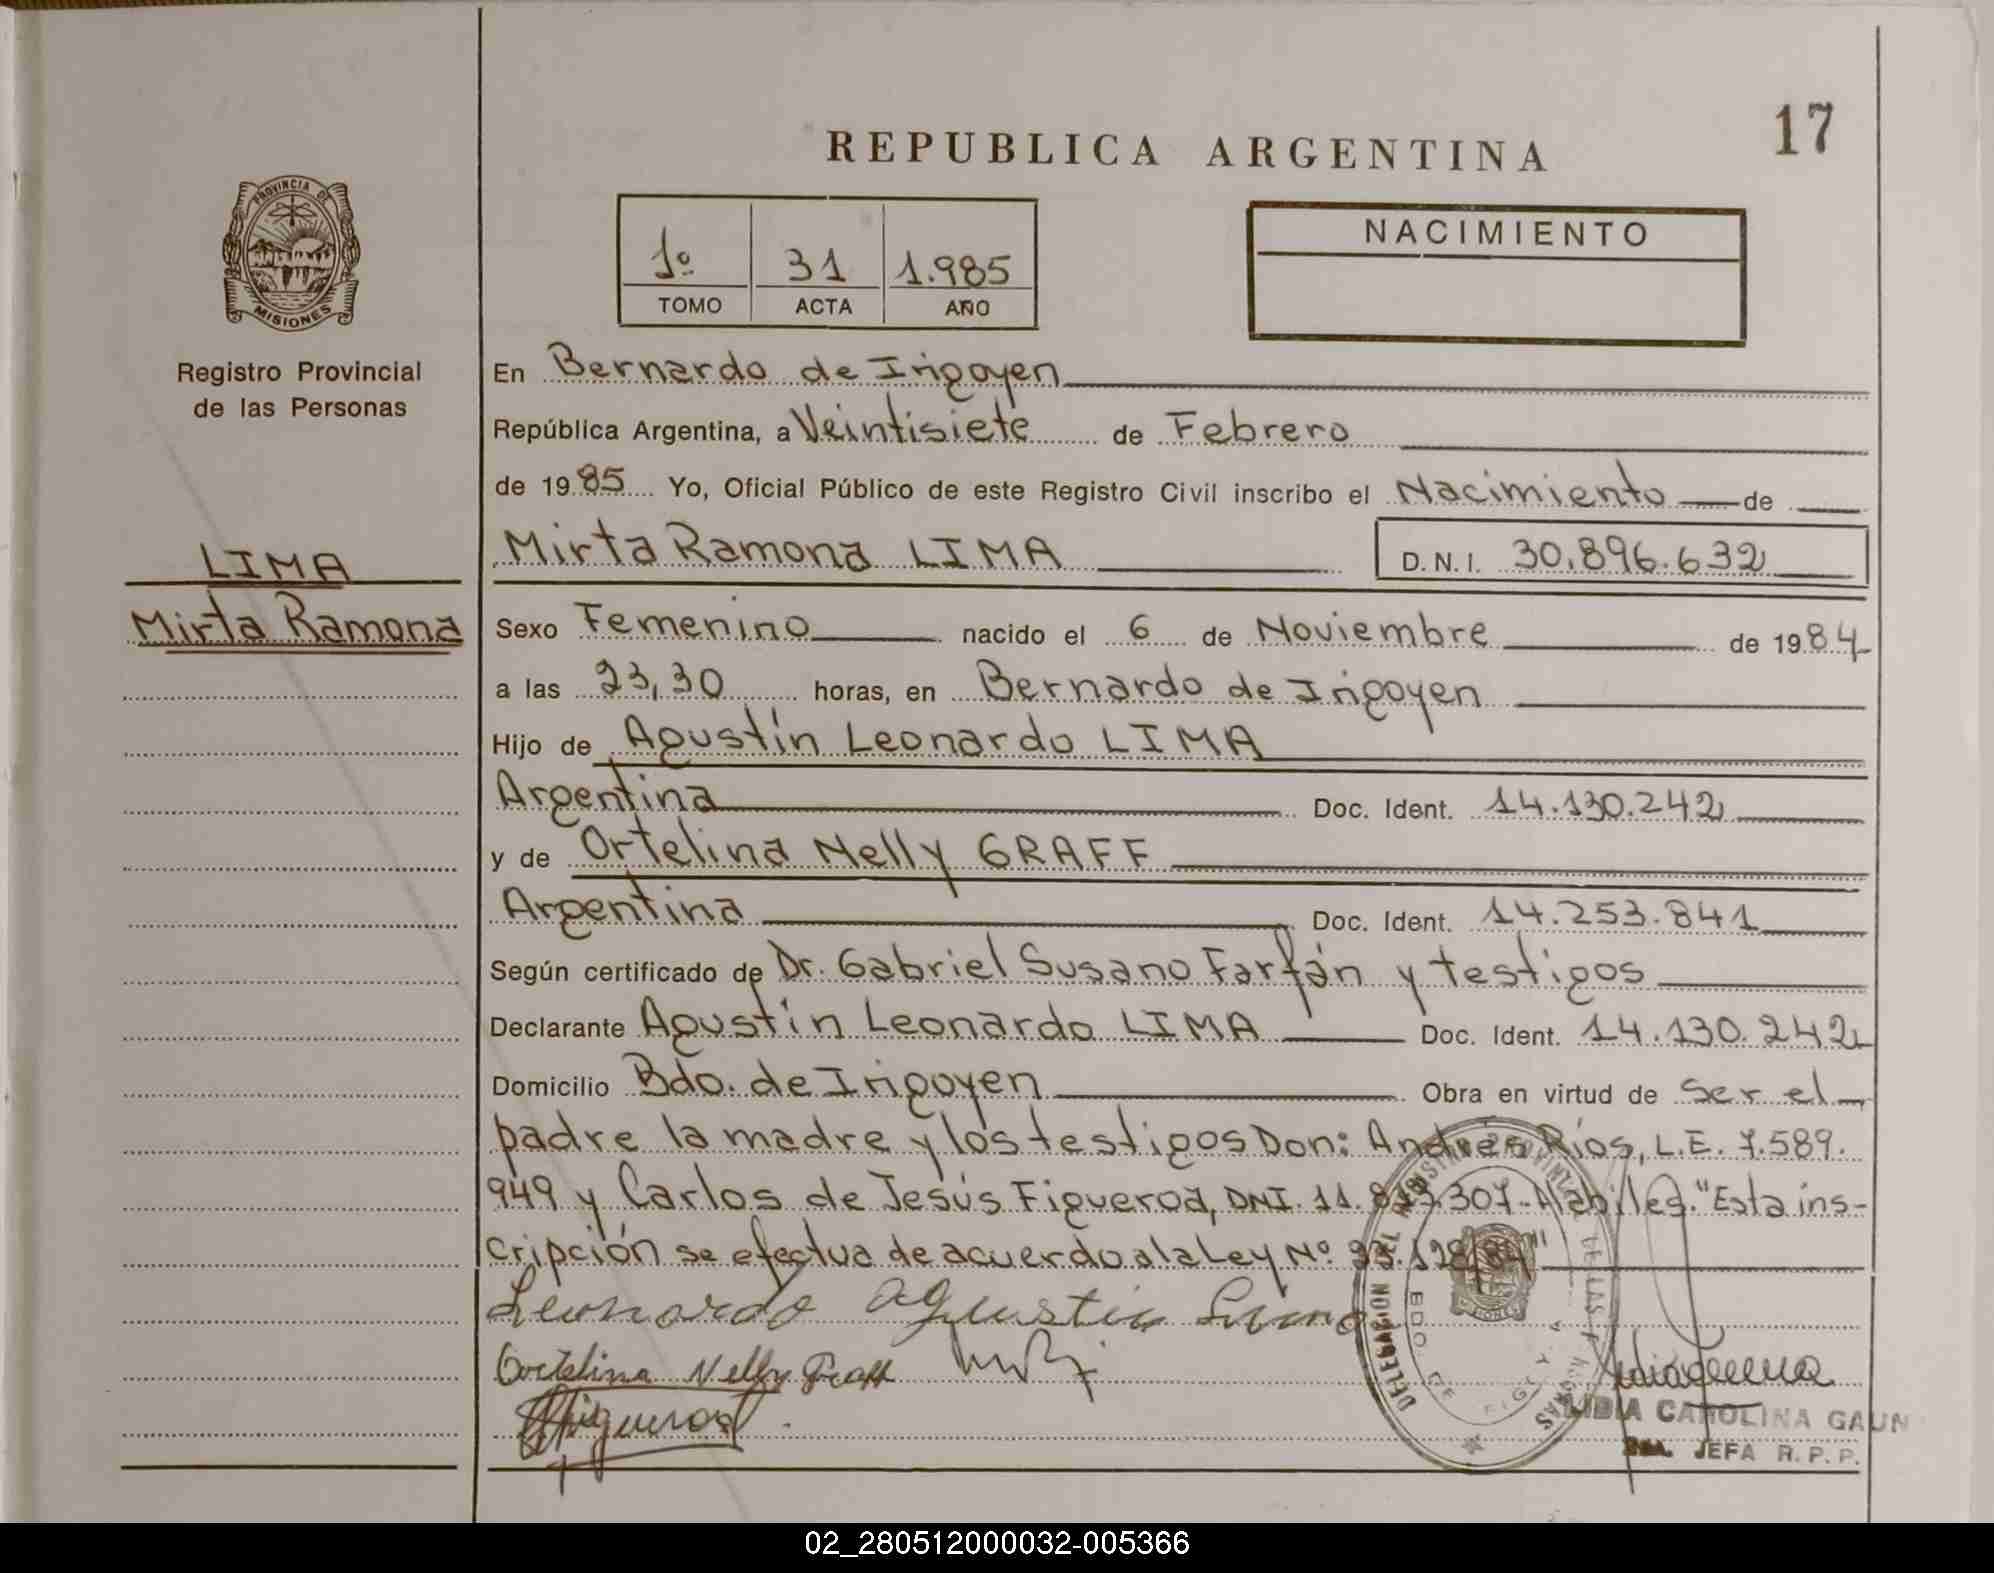 17
REPUBLICA ARGENTINA
PROVINCIA DE
MISIONES
Registro Provincial
de las Personas
LIMA
Mirta Ramona
1º 31 1.985
TOMO ACTA AÑO
NACIMIENTO
En Bernardo de Irigoyen
República Argentina, a Veintisiete de Febrero
de 1985 Yo, Oficial Público de este Registro Civil inscribo el Nacimiento de
Mirta Ramona LIMA D.N.I. 30.896.632
Sexo Femenino nacido el 6 de Noviembre de 1984
a las 23,30 horas, en Bernardo de Irigoyen
Hijo de Agustín Leonardo LIMA
Argentina Doc. Ident. 14.130.242
y de Ortelina Nelly GRAFF
Argentina Doc. Ident. 14.253.841
Según certificado de Dr. Gabriel Susano Farfán y testigos
Declarante Agustín Leonardo LIMA Doc. Ident. 14.130.242
Domicilio Bdo. de Irigoyen Obra en virtud de ser el
padre la madre y los testigos Don: Andrés Ríos, L.E. 7.589.
949 y Carlos de Jesús Figueroa, DNI. 11. 307.- Habiles. "Esta ins-
cripción se efectua de acuerdo a la Ley Nº 23.128/84"
Leonardo Agustin Lima
Ortelina Nelly Graff
Figueroa
LIDIA CAROLINA GAUN
JEFA R. P. P.
02_280512000032-005366